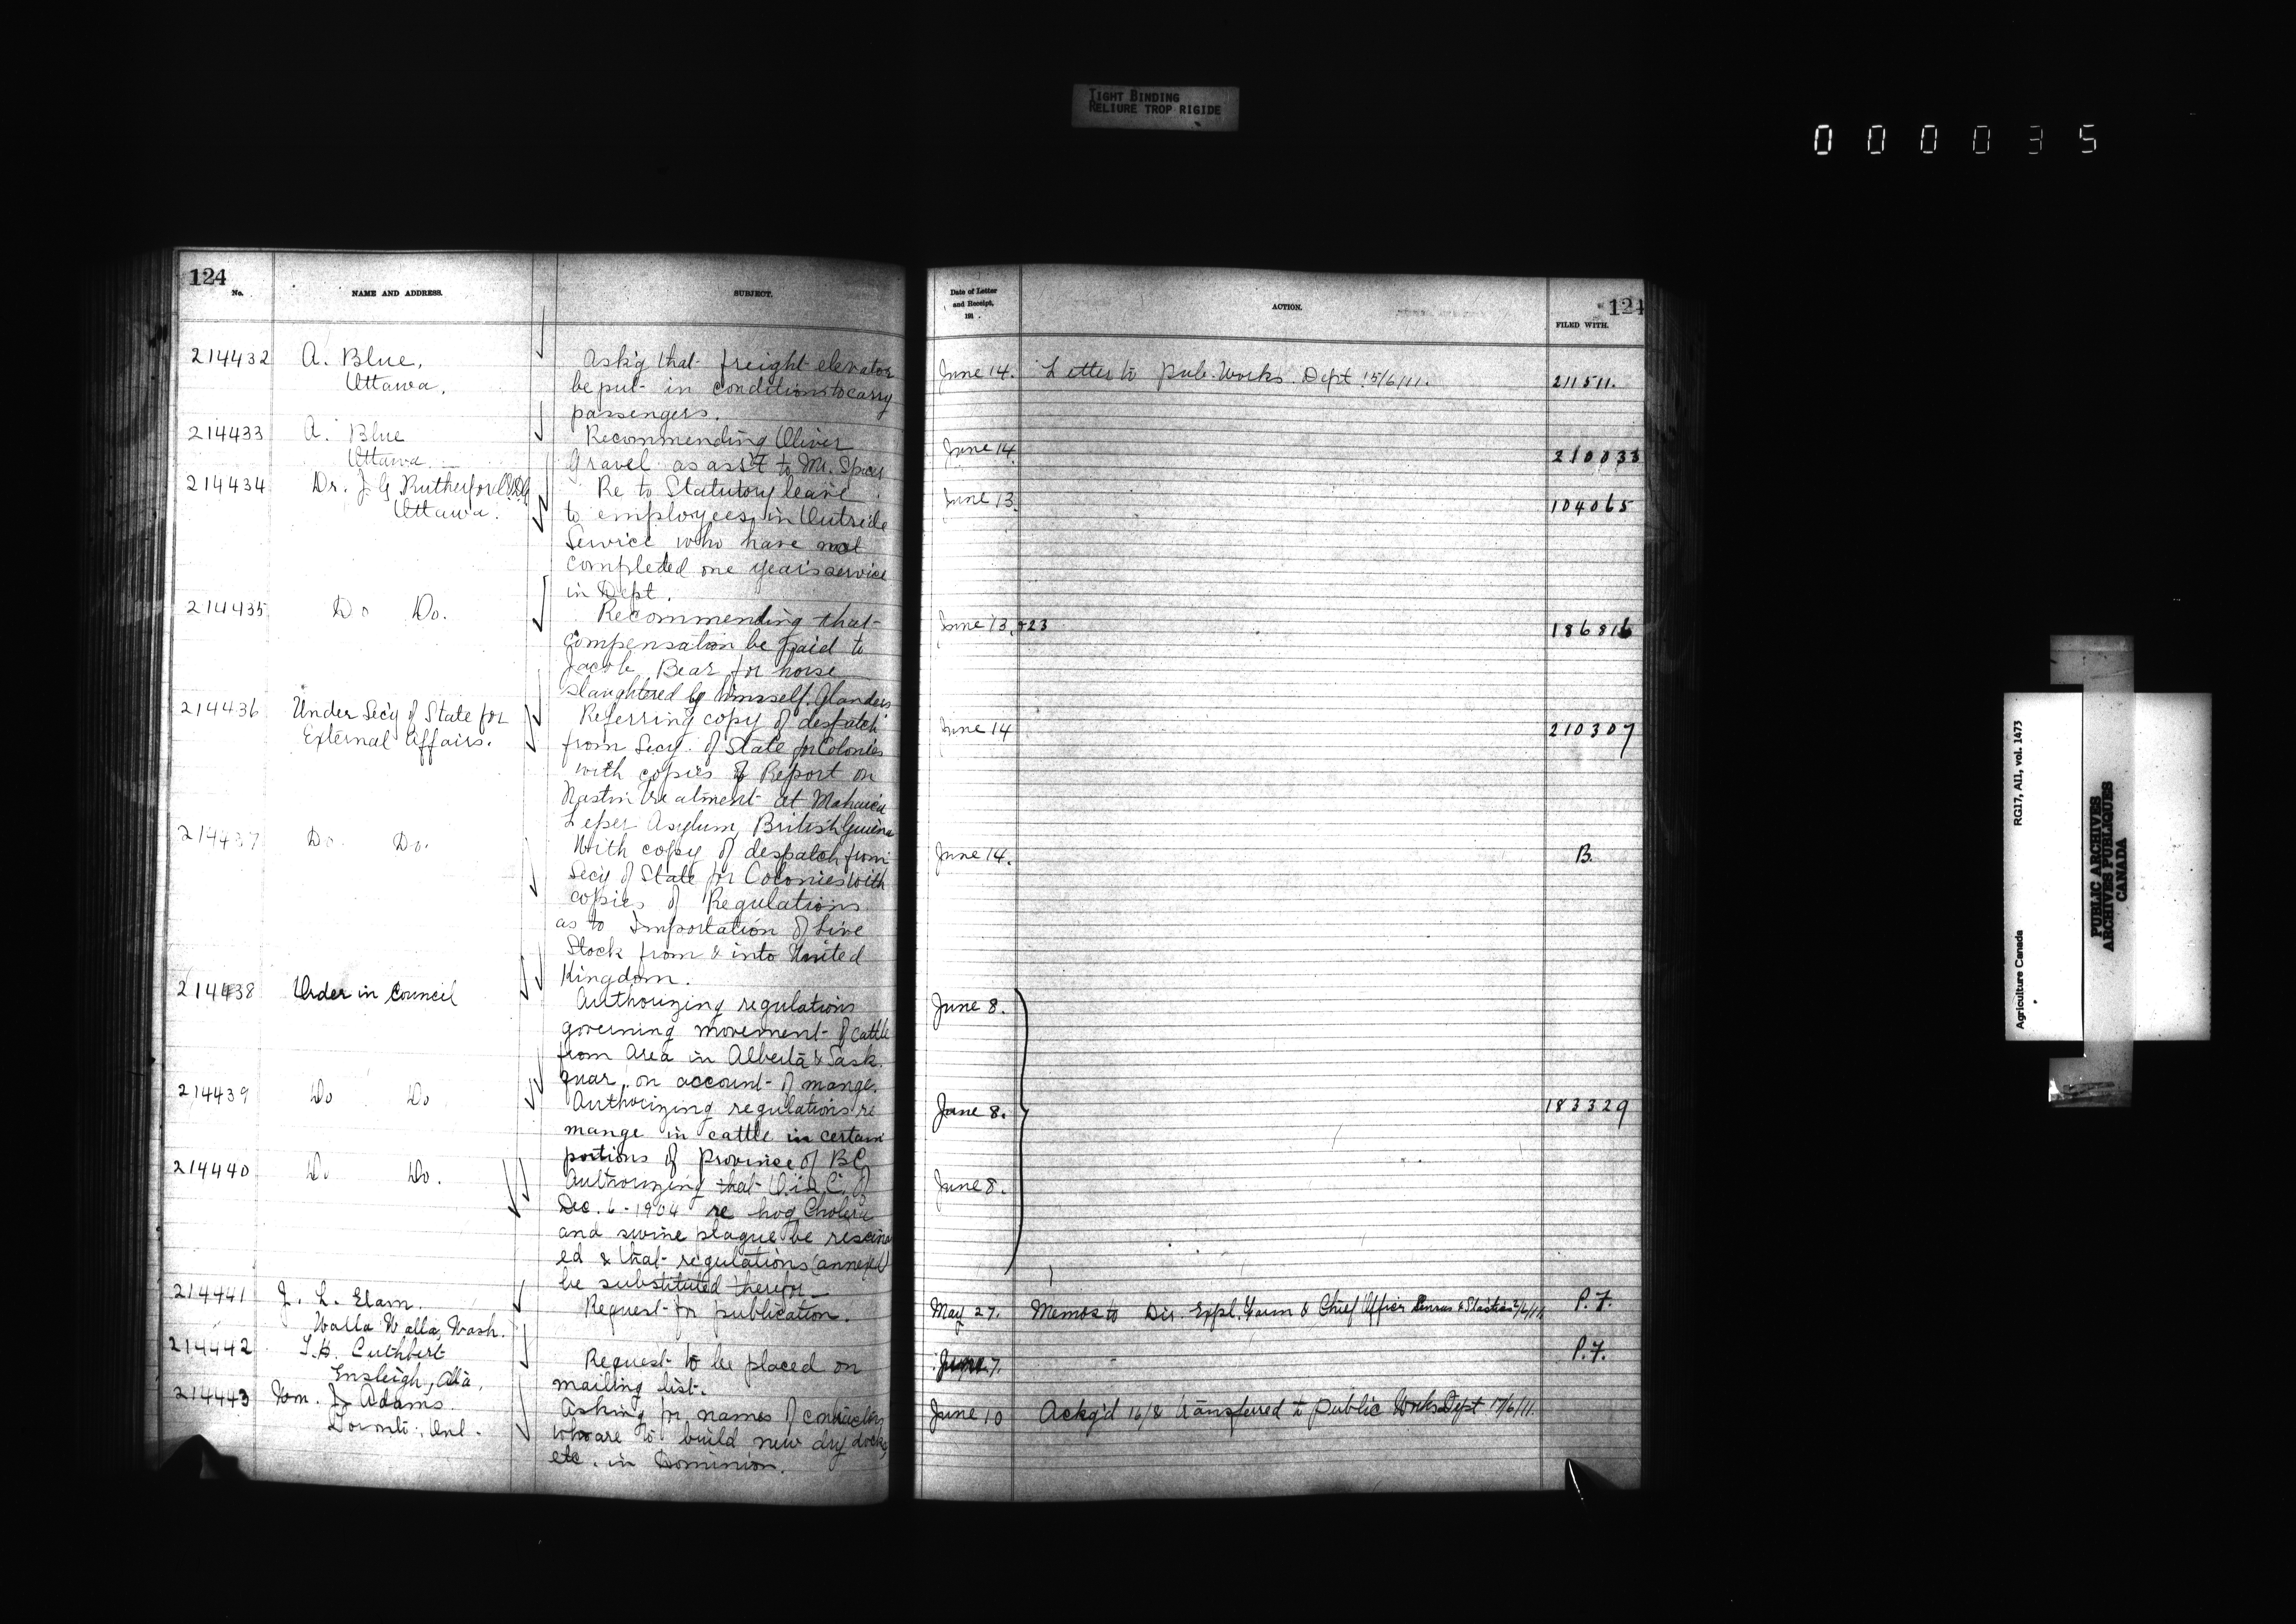 TIGHT BINDING
RELIURE TROP RIGIDE
000035
124
No.
NAME AND ADDRESS.
SUBJECT.
214432
A. Blue,
Ottawa.
Ask'g that freight elevator
be put in condition to carry
passengers.
214433
A. Blue
Ottawa
Recommending Oliver
Gravel as ass't to Mr. Spicer
214434
Dr. J. G. Rutherford
Ottawa.
Re to Statutory leave
to employees in Outside
Service who have not
completed one year's service
in Dept.
214435
Do Do.
Recommending that
compensation be paid to
Jacob Bear for horse
slaughtered by himself. Glanders
214436
Under Sec'y of State for
External Affairs.
Referring copy of despatch
from Secy. of State for Colonies
with copies of Report on
Nastin treatment at Mahaica
Leper Asylum, British Guiana
214437
Do. Do.
With copy of despatch from
Secy of State for Colonies with
copies of Regulations
as to Importation of Live
Stock from & into United
Kingdom.
214438
Order in Council
Authorizing regulations
governing movement of cattle
from Area in Alberta & Sask.
quar. on account of mange.
214439
Do Do
Authorizing regulations re
mange in cattle in certain
portions of Province of B.C.
214440
Do Do.
Authorizing that O.i.C. of
Dec. 6 - 1904 re hog Cholera
and swine plague be rescind
ed & that regulations annexed
be substituted therefor
214441
J. L. Elam.
Walla Walla, Wash.
Request for publication.
214442
T.H. Cuthbert
Ensleigh, Alta.
Request to be placed on
mailing list.
214443
Wm. J. Adams.
Toronto, Ont.
Asking for names of contractors
who are to build new dry docks
etc. in Dominion.
Date of Letter
and Receipt,
191 .
ACTION.
124
FILED WITH.
June 14. Letter to Pub. Works Dept 15/6/11. 211511.
June 14. 210033
June 13. 104065
June 13, +23 186816
June 14 210307
June 14. B.
June 8.
June 8. 183329
June 8.
May 27. Memos to Dir. Expl. Farm & Chief Officer Census & Statistics P.F.
June 7. P.F.
June 10 Ackg'd 16/ & transferred to Public Works Dept 17/6/11.
Agriculture Canada RG17, AII, vol. 1473
PUBLIC ARCHIVES
ARCHIVES PUBLIQUES
CANADA